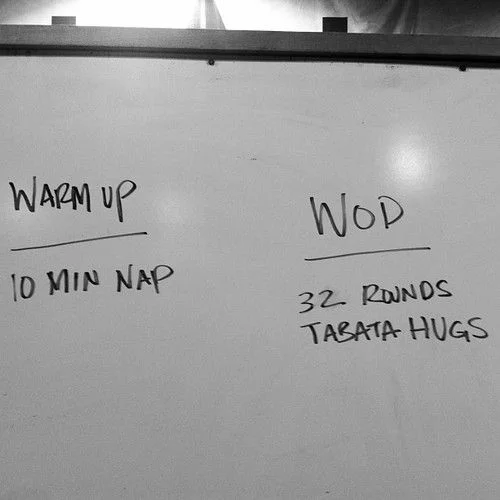 WARM UP
10 MIN NAP
WOD
32 ROUNDS
TABATA HUGS